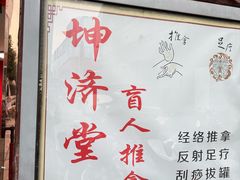 坤济堂
盲人推拿
推拿
足疗
经络推拿
反射足疗
刮痧拔罐